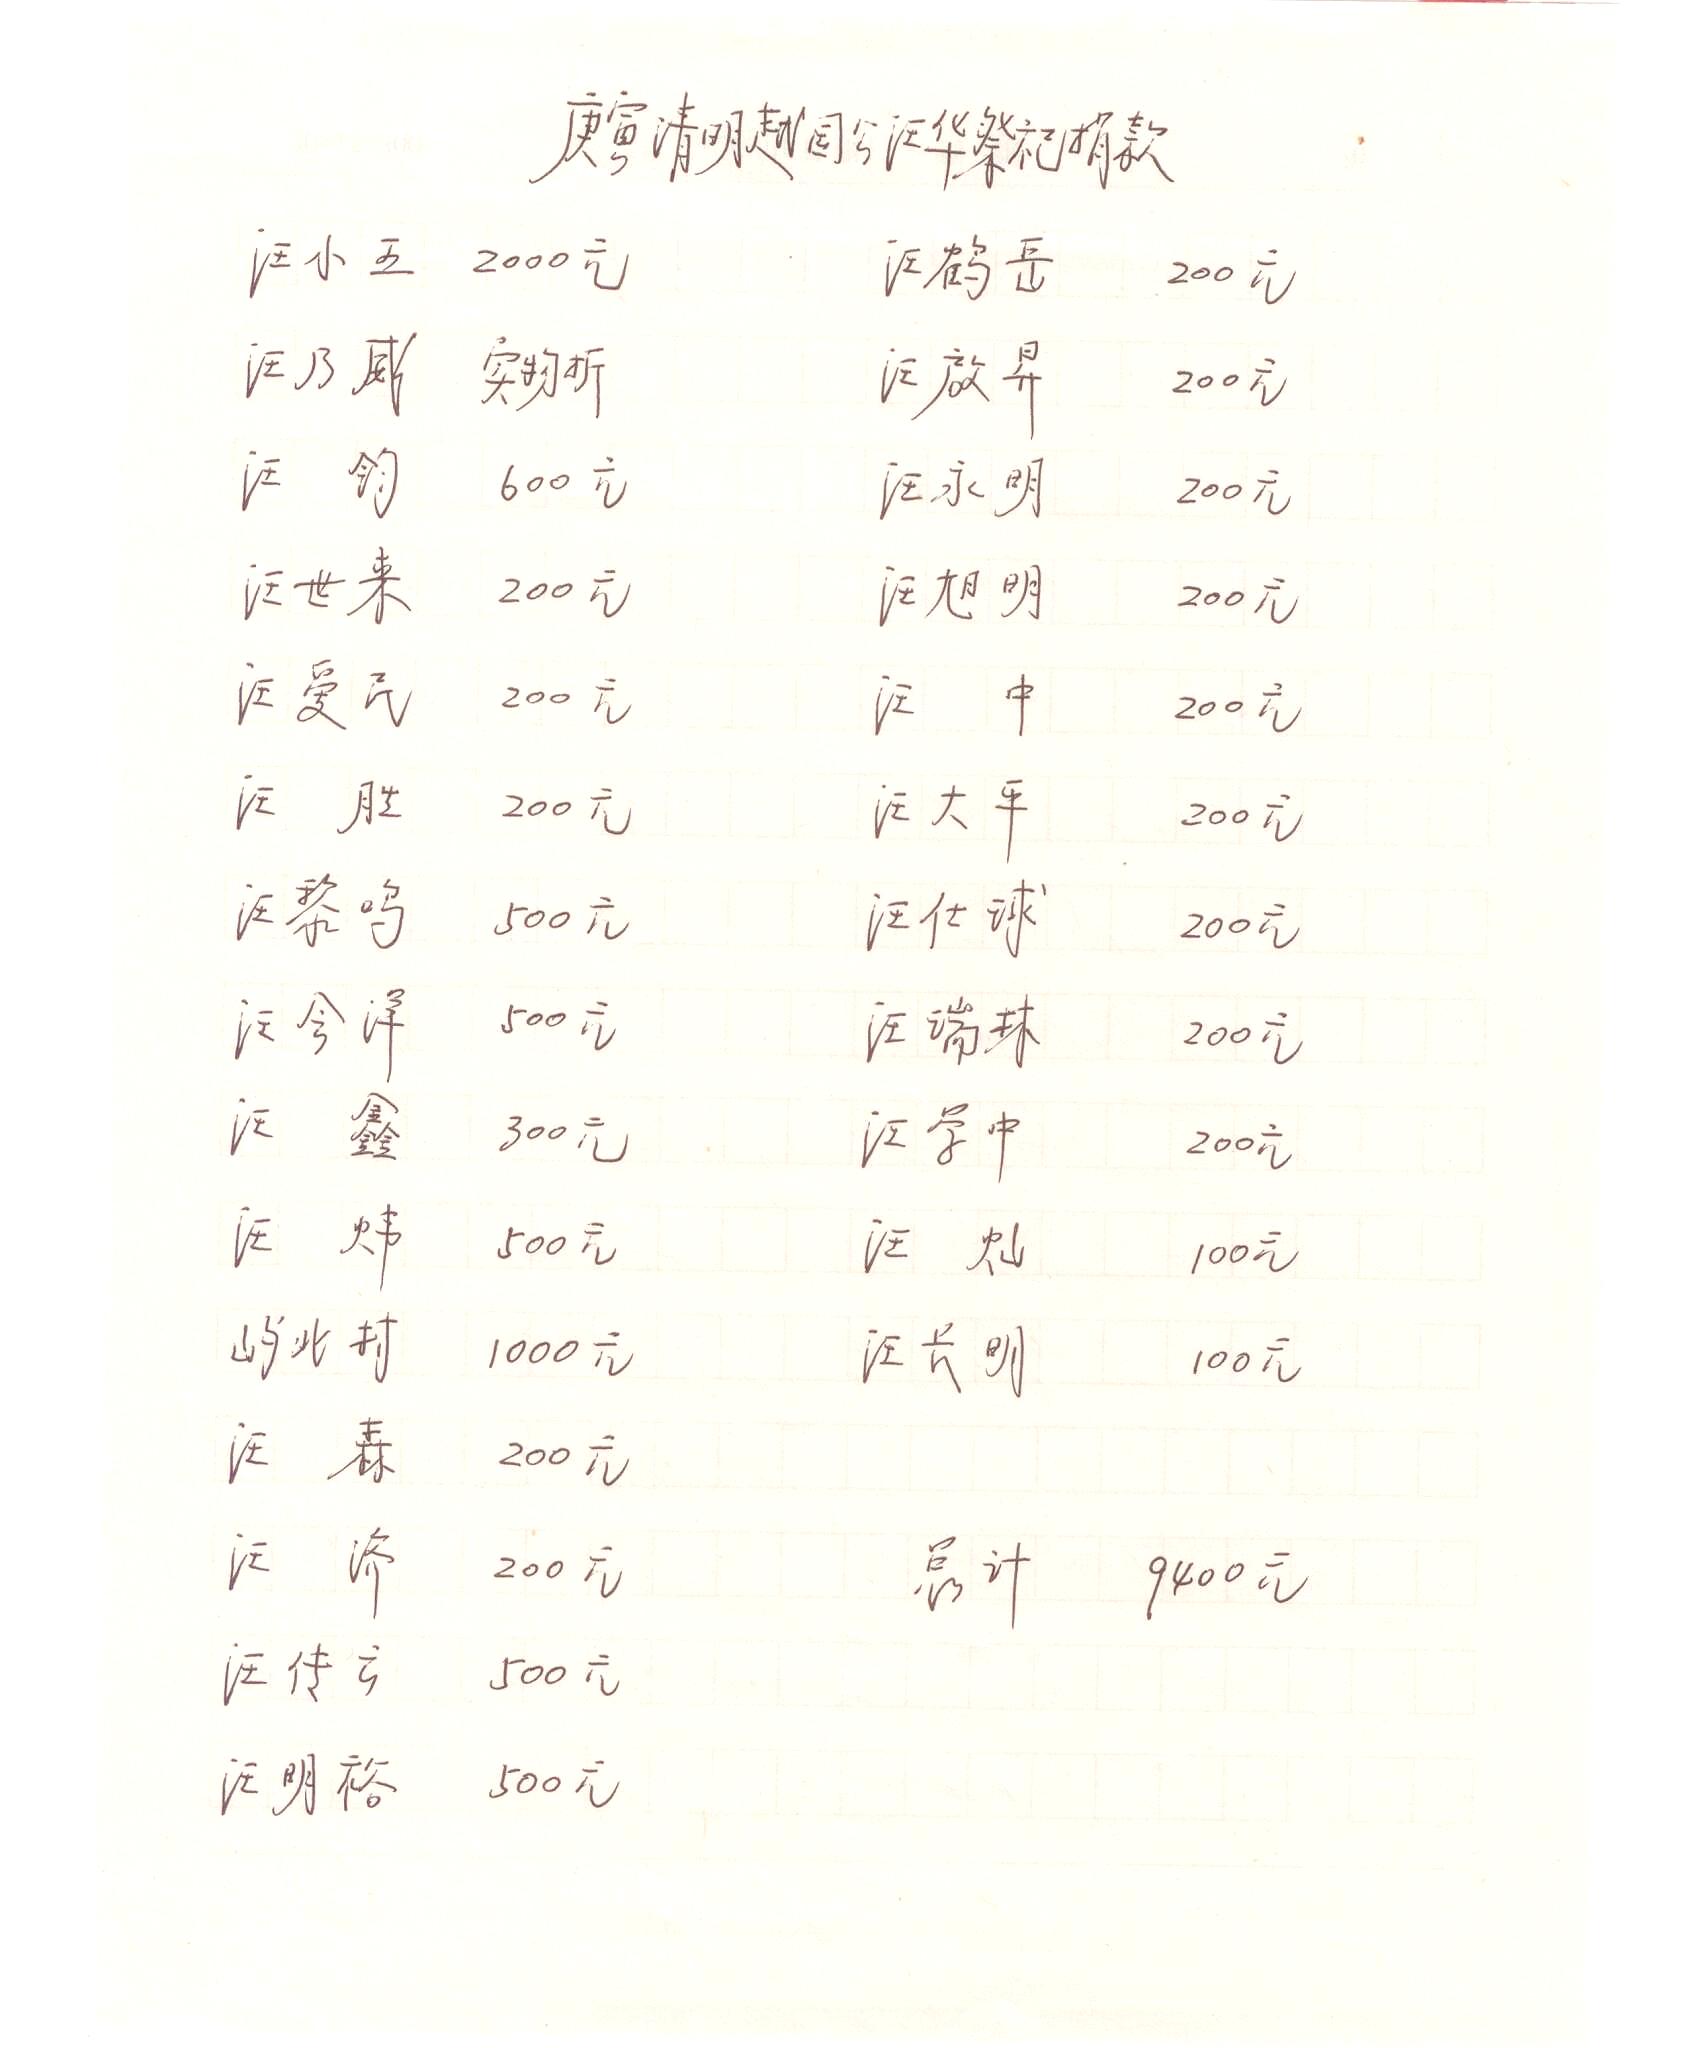 庚寅清明越国公汪华祭祀捐款
汪小五 2000元
汪乃威 实物折
汪钧 600元
汪世来 200元
汪爱民 200元
汪胜 200元
汪黎鸣 500元
汪令洋 500元
汪鑫 300元
汪炜 500元
屿北村 1000元
汪森 200元
汪济 200元
汪传云 500元
汪明裕 500元
汪鹤岳 200元
汪啟昇 200元
汪永明 200元
汪旭明 200元
汪中 200元
汪大平 200元
汪仕球 200元
汪瑞林 200元
汪学中 200元
汪灿 100元
汪长明 100元
总计 9400元